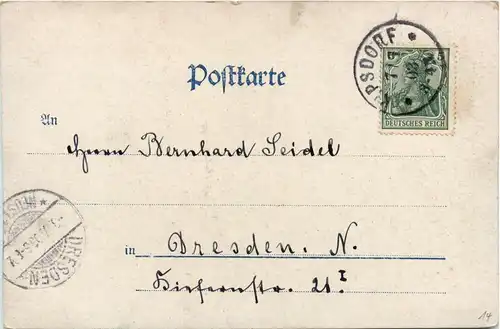 KIPSDORF
DEUTSCHES REICH
Postkarte
An
Herrn Bernhard Seidel
in Dresden. N.
21 I
DRESDEN
14